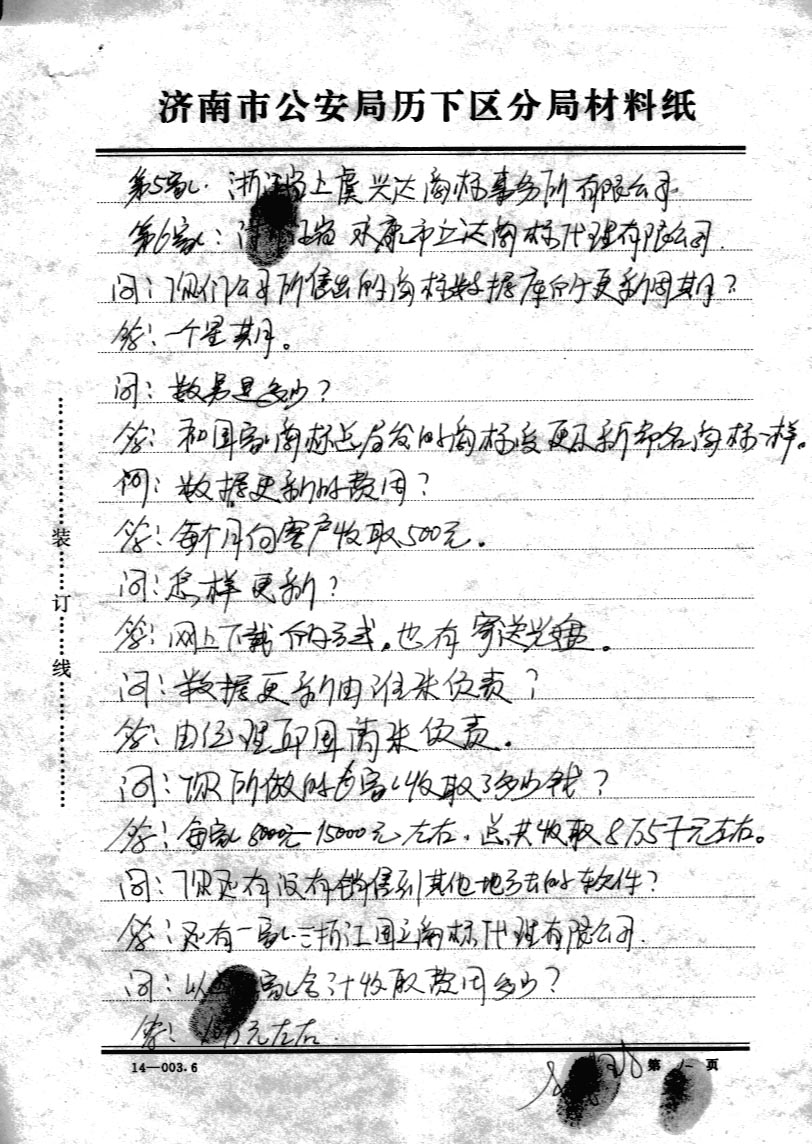 济南市公安局历下区分局材料纸
第5家: 浙江省上虞兴达商标事务所有限公司
第6家: 浙江省永康市立达商标代理有限公司.
问: 你们公司所售出的商标数据库的更新周期?
答: 一个星期。
问: 数易是多少?
答: 和国家商标总局发的商标 更 新 商标一样。
问: 数据更新的费用?
答: 每个月向客户收取500元。
问: 怎样更新?
答: 网上下载的方式,也有寄送光盘。
问: 数据更新由谁来负责?
答: 由经理邱国 来负责。
问: 你所做的6家收取了多少钱?
答: 每家8000元—15000元左右,总共收取8万5千元左右。
问: 你还有没有销售到其他地方去的软件?
答: 还有一家:浙江国立商标代理有限公司.
问: 以 家合计收取费用多少?
答: 万元左右.
装
订
线
14—003.6
第 页